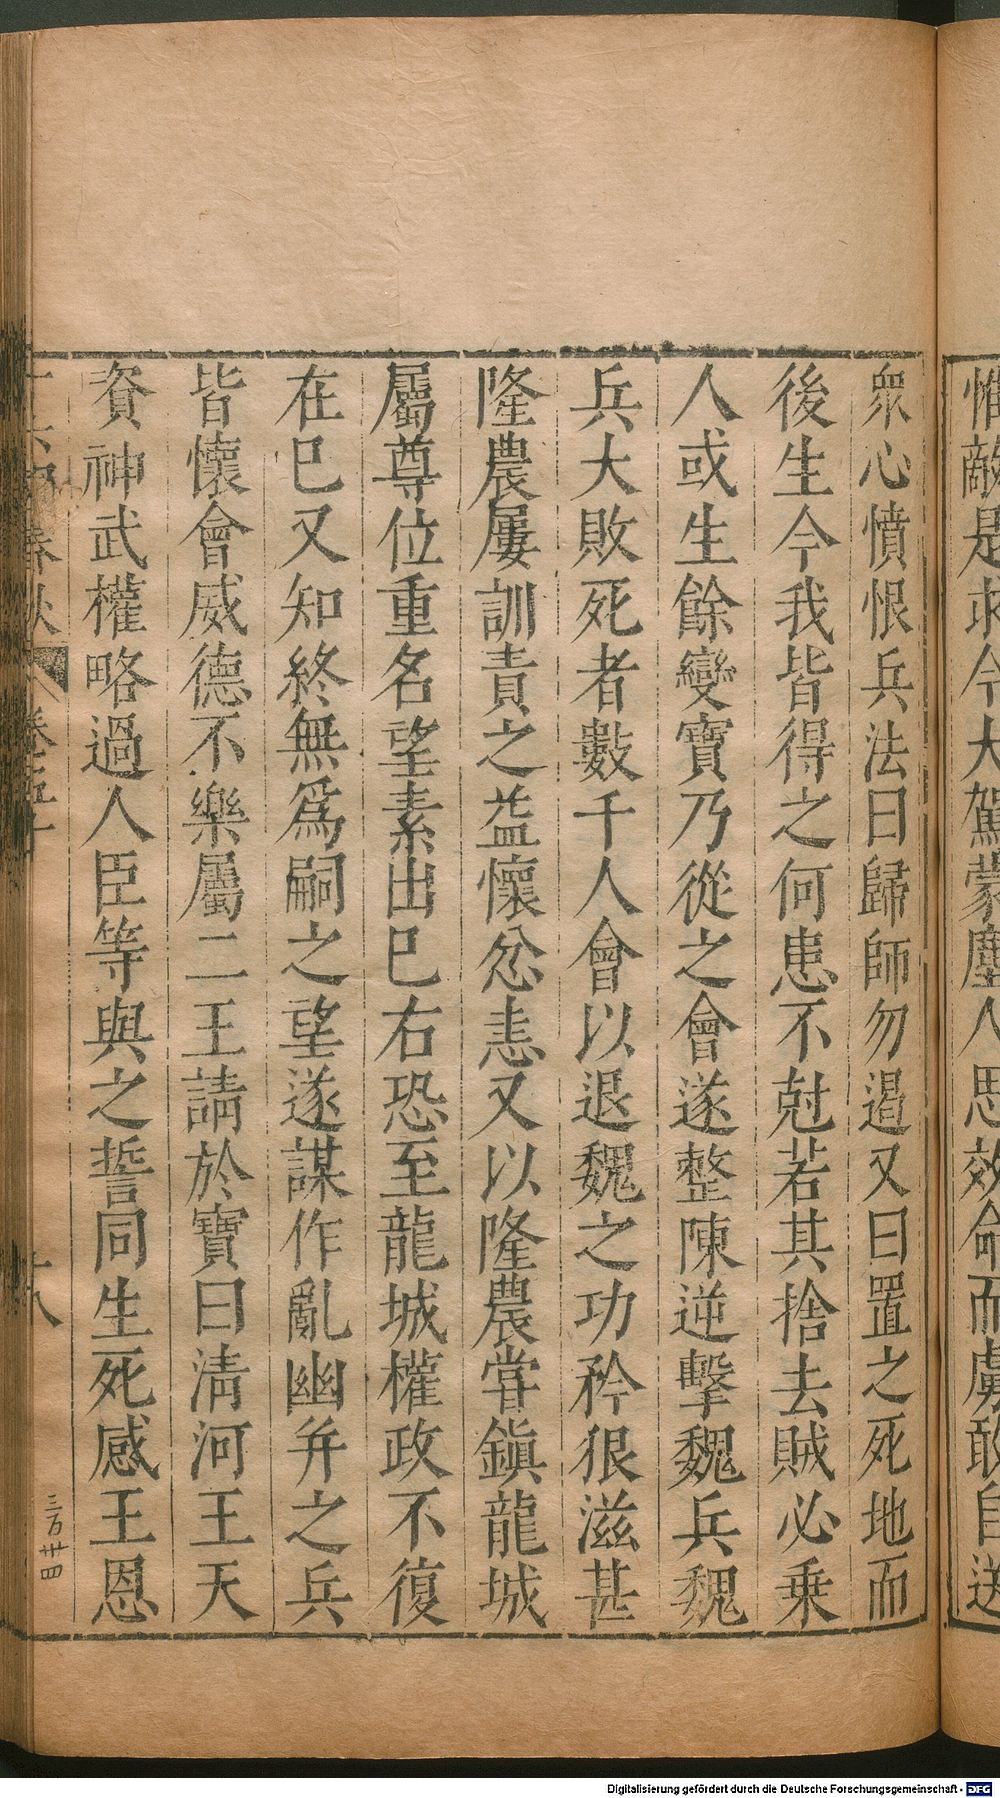 惟敵是求今大駕蒙塵人思效命而虜敢自送
衆心憤恨兵法曰歸師勿遏又曰置之死地而
後生今我皆得之何患不尅若其捨去賊必乗
人或生餘變寶乃從之會遂整陳逆擊魏兵魏
兵大敗死者數千人會以退魏之功矜狠滋甚
隆農屢訓責之益懷忿恚又以隆農甞鎭龍城
屬尊位重名望素出巳右恐至龍城權政不復
在巳又知終無爲嗣之望遂謀作亂幽并之兵
皆懷會威德不樂屬二王請於寶曰淸河王天
資神武權略過人臣等與之誓同生死感王恩
春秋 卷五十 十八
三万廿四
Digitalisierung gefördert durch die Deutsche Forschungsgemeinschaft - DFG